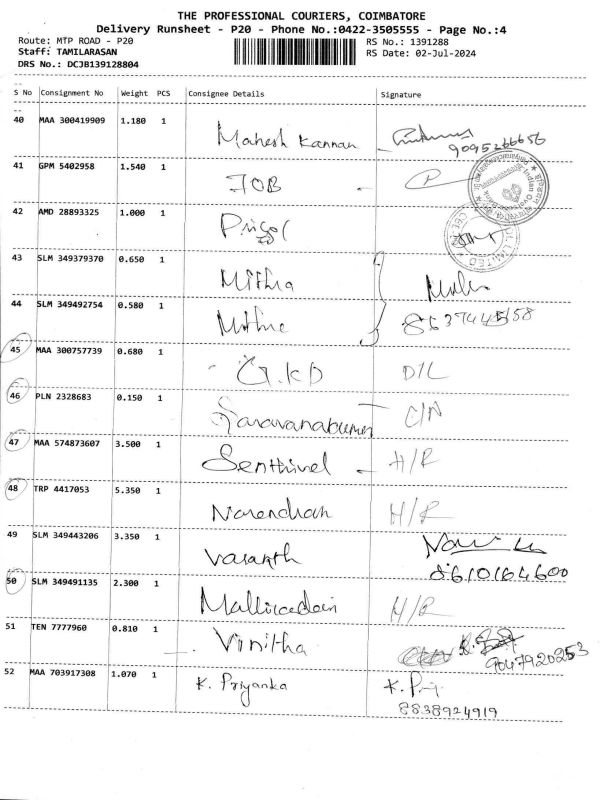 THE PROFESSIONAL COURIERS, COIMBATORE
Delivery Runsheet - P20 - Phone No.:0422-3505555 - Page No.:4
Route: MTP ROAD - P20
RS No.: 1391288
Staff: TAMILARASAN
RS Date: 02-Jul-2024
DRS No.: DCJB139128804
S No Consignment No Weight PCS Consignee Details Signature
40 MAA 300419909 1.180 1 Mahesh Kannan
9095266656
41 GPM 5402958 1.540 1 IOB
42 AMD 28893325 1.000 1
43 SLM 349379370 0.650 1 Mithra
44 SLM 349492754 0.580 1 Mithra
45 MAA 300757739 0.680 1 G.KD D/L
46 PLN 2328683 0.150 1 Saravanakumar C/N
47 MAA 574873607 3.500 1 Senthivel - H/R
48 TRP 4417053 5.350 1 Narendhan H/R
49 SLM 349443206 3.350 1 Vasanth
8610164600
50 SLM 349491135 2.300 1 H/R
51 TEN 7777960 0.810 1 Vinitha
9047920253
52 MAA 703917308 1.070 1 K. Priyanka K. Pri
8838924919